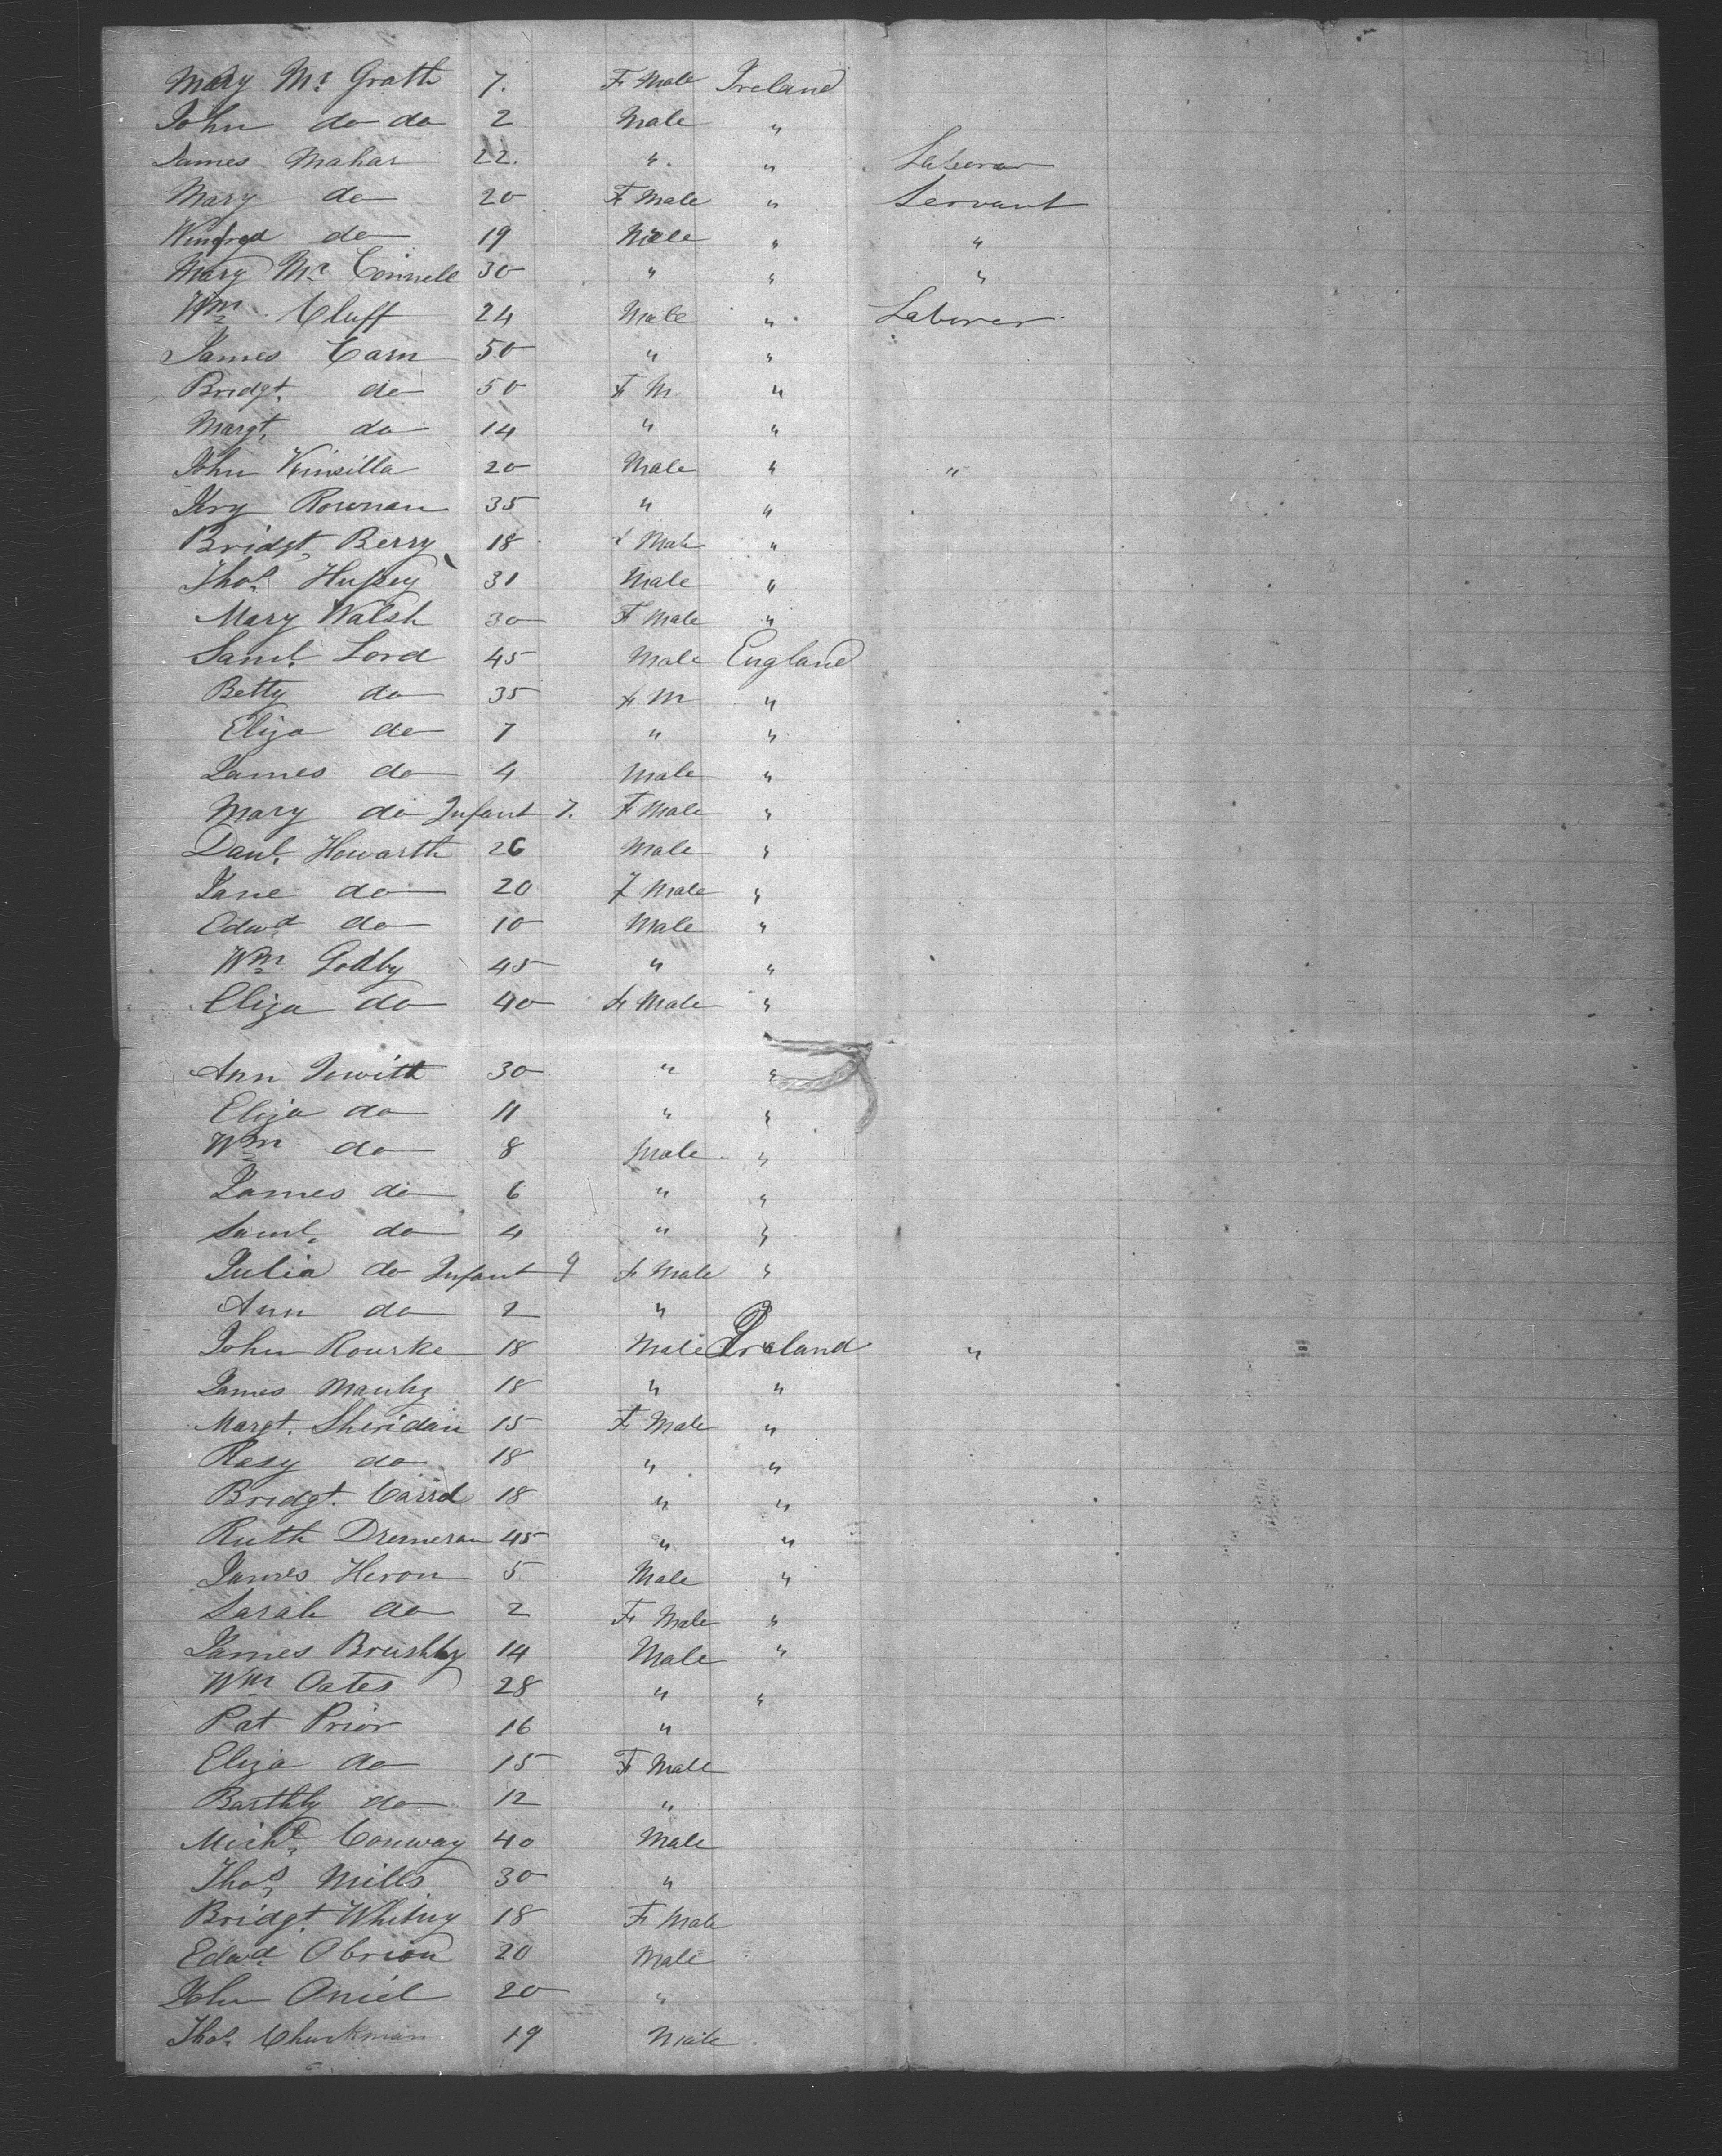 Mary Mc Grath 7. F Male Ireland
John do do 2 Male "
James Mahar 22. " " Laborer
Mary do 20 F Male " Servant
Winfred do 19 Male " "
Mary Mc Connell 30 " " "
Wm Cluff 24 Male " Laborer
James Carn 50 " "
Bridgt. do 50 F M "
Margt. do 14 " "
John Kinsilla 20 Male " "
Rownan 35 " "
Bridgt. Berry 18 F Male "
Thos. Hussey 31 Male "
Mary Walsh 30 F Male "
Saml. Lord 45 Male England
Betty do 35 F M "
Eliza do 7 " "
James do 4 Male "
Mary do Infant 7. F Male "
Danl. Howarth 26 Male "
Jane do 20 F Male "
Edwd. do 10 Male "
Wm Godby 45 " "
Eliza do 40 F Male "
Ann 30 " "
Eliza do 11 " "
Wm do 8 Male "
James do 6 " "
Saml. do 4 " "
Julia do Infant 9 F Male "
Ann do 2 " "
John Rourke 18 Male Ireland "
James 18 " "
Margt. Sheridan 15 F Male "
Rosy do 18 " "
Bridgt. 18 " "
Ruth 45 " "
James Heron 5 Male "
Sarah do 2 F Male "
James Brushby 14 Male "
Wm Oates 28 " "
Pat Prior 16 "
Eliza do 15 F Male
Barthly do 12 "
Michl. Conway 40 Male
Thos. Mills 30 "
Bridgt. Whitny 18 F Male
Edwd. Obrion 20 Male
John Oniel 20 "
Thos. 19 Male